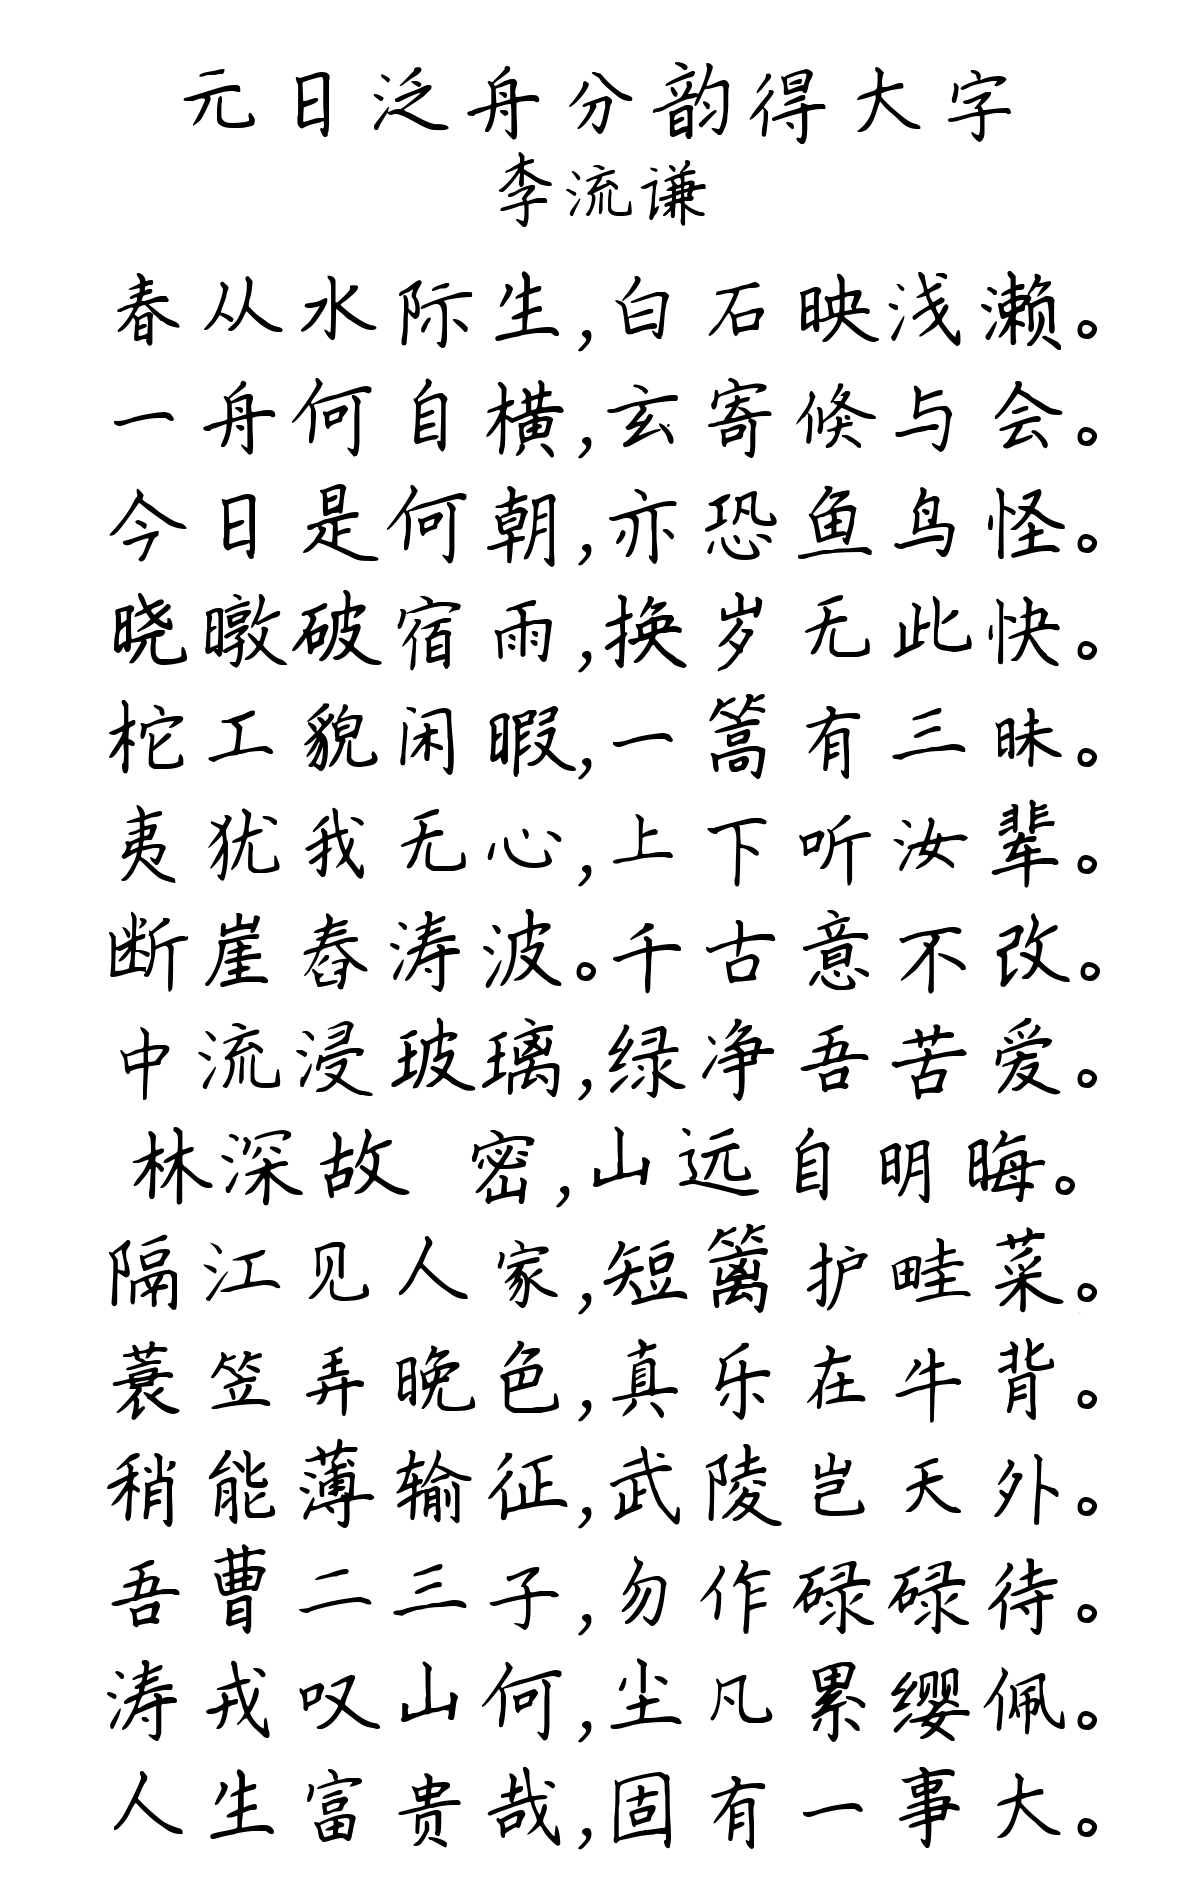 元日泛舟分韵得大字
李流谦
春从水际生,白石映浅濑。
一舟何自横,玄寄倏与会。
今日是何朝,亦恐鱼鸟怪。
晓暾破宿雨,换岁无此快。
柁工貌闲暇,一篙有三昧。
夷犹我无心,上下听汝辈。
断崖舂涛波。千古意不改。
中流浸玻璃,绿净吾苦爱。
林深故 密,山远自明晦。
隔江见人家,短篱护畦菜。
蓑笠弄晚色,真乐在牛背。
稍能薄输征,武陵岂天外。
吾曹二三子,勿作碌碌待。
涛戎叹山何,尘凡累缨佩。
人生富贵哉,固有一事大。